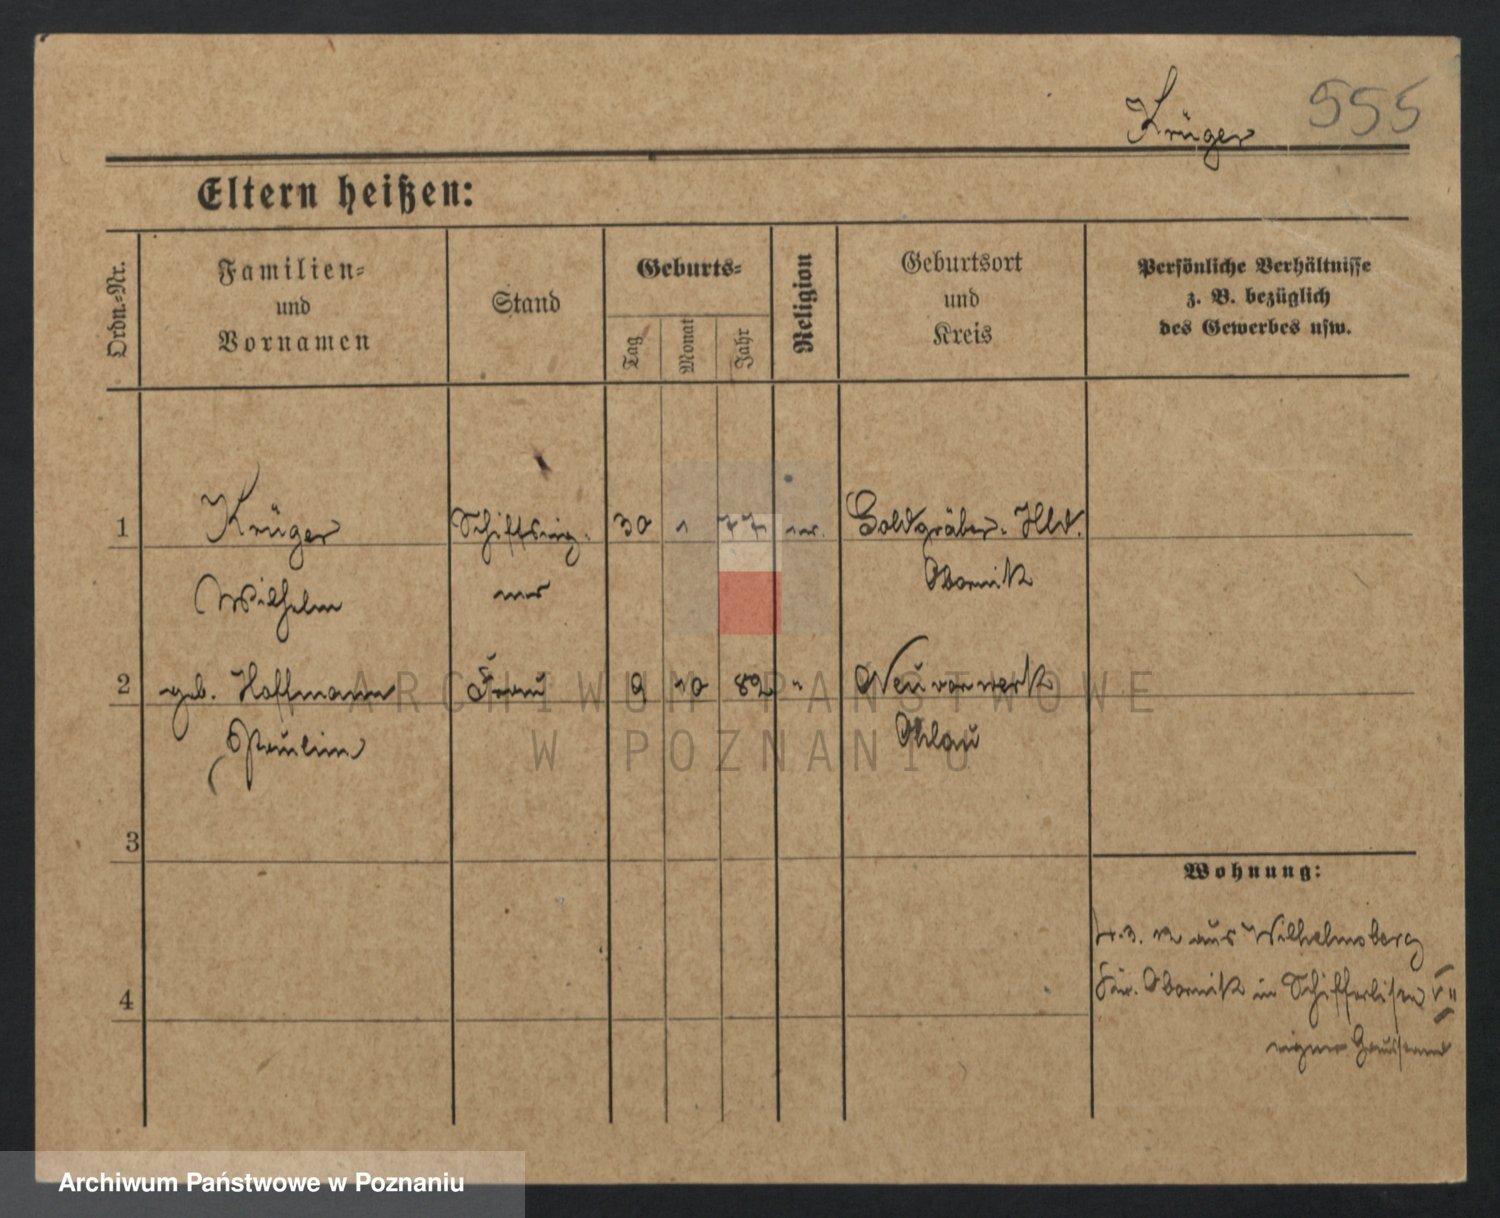 Krüger 555
Eltern heißen:
Ordn.-Nr.
Familien-
und
Vornamen
Stand
Geburts-
Tag
Monat
Jahr
Religion
Geburtsort
und
Kreis
Persönliche Verhältnisse
z. B. bezüglich
des Gewerbes usw.
1 Krüger Schiffseig- 30 1 77 ev. Goldgräber. Hld.
Wilhelm ner Obornik
2 geb. Hoffmann Frau 9 10 82 " Neuvorwerk
Paulin Ohlau
3
4
Wohnung:
12 aus Wilhelmsberg
Kr. Obornik in
eigner
ARCHIWUM PAŃSTWOWE
W POZNANIU
Archiwum Państwowe w Poznaniu